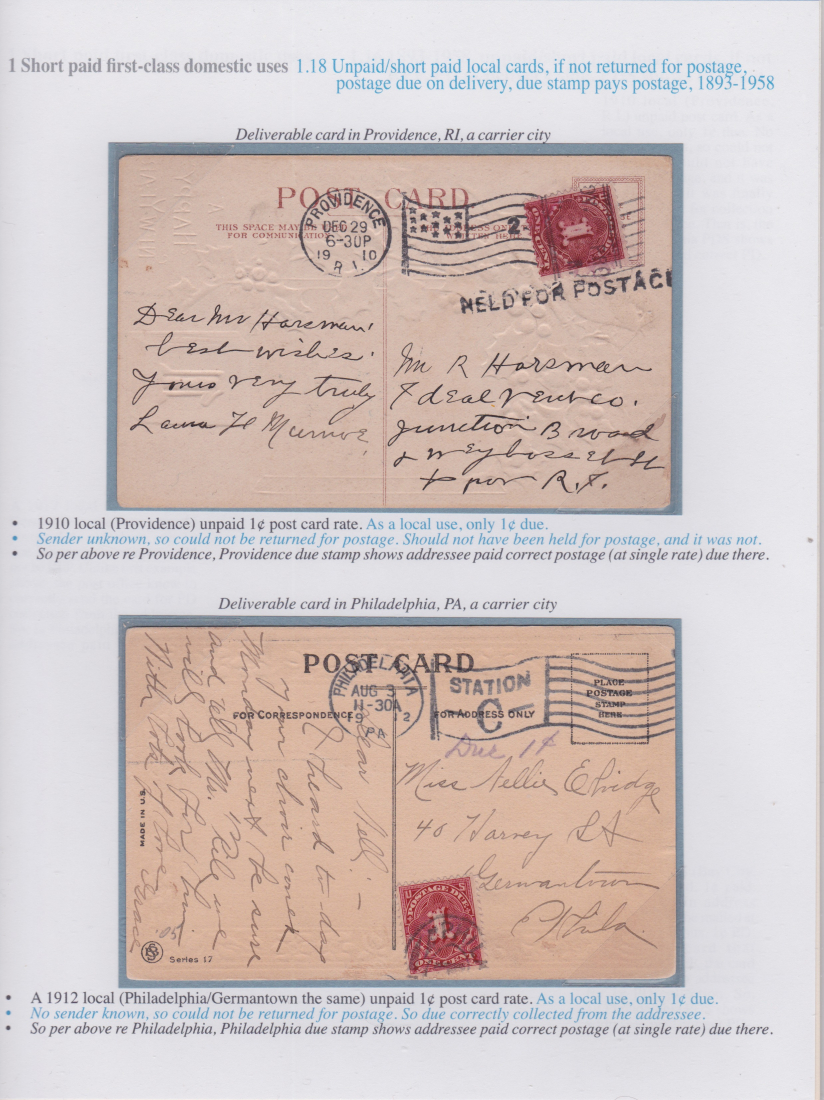 1 Short paid first-class domestic uses 1.18 Unpaid/short paid local cards, if not returned for postage,
postage due on delivery, due stamp pays postage, 1893-1958
Deliverable card in Providence, RI, a carrier city
POST CARD
THIS SPACE MAY BE
FOR COMMUNICATION
PROVIDENCE
DEC 29
6-30P
19 10
R.I.
2
1
HELD FOR POSTAGE
Dear Mr Horsman,
best wishes.
Yours very truly
Laura H Munroe
Mr R Horsman
Ideal Vent Co.
Junction Broad
& Weybosset St
R.I.
• 1910 local (Providence) unpaid 1¢ post card rate. As a local use, only 1¢ due.
• Sender unknown, so could not be returned for postage. Should not have been held for postage, and it was not.
• So per above re Providence, Providence due stamp shows addressee paid correct postage (at single rate) due there.
Deliverable card in Philadelphia, PA, a carrier city
POST CARD
FOR CORRESPONDENCE
FOR ADDRESS ONLY
PHILADELPHIA
AUG 3
11-30A
19 12
PA
STATION
C
PLACE
POSTAGE
STAMP
HERE
Due 1¢
Dear Nell: –
I heard to day
your choir comes
Monday next be sure
and tell Mr. we
will look for him
With lots of love
Grace
'05
Miss Nellie Elvidge
40 Harvey St
Germantown
Phila.
U S
POSTAGE DUE
1
ONE CENT
MADE IN U.S.
Series 17
• A 1912 local (Philadelphia/Germantown the same) unpaid 1¢ post card rate. As a local use, only 1¢ due.
• No sender known, so could not be returned for postage. So due correctly collected from the addressee.
• So per above re Philadelphia, Philadelphia due stamp shows addressee paid correct postage (at single rate) due there.